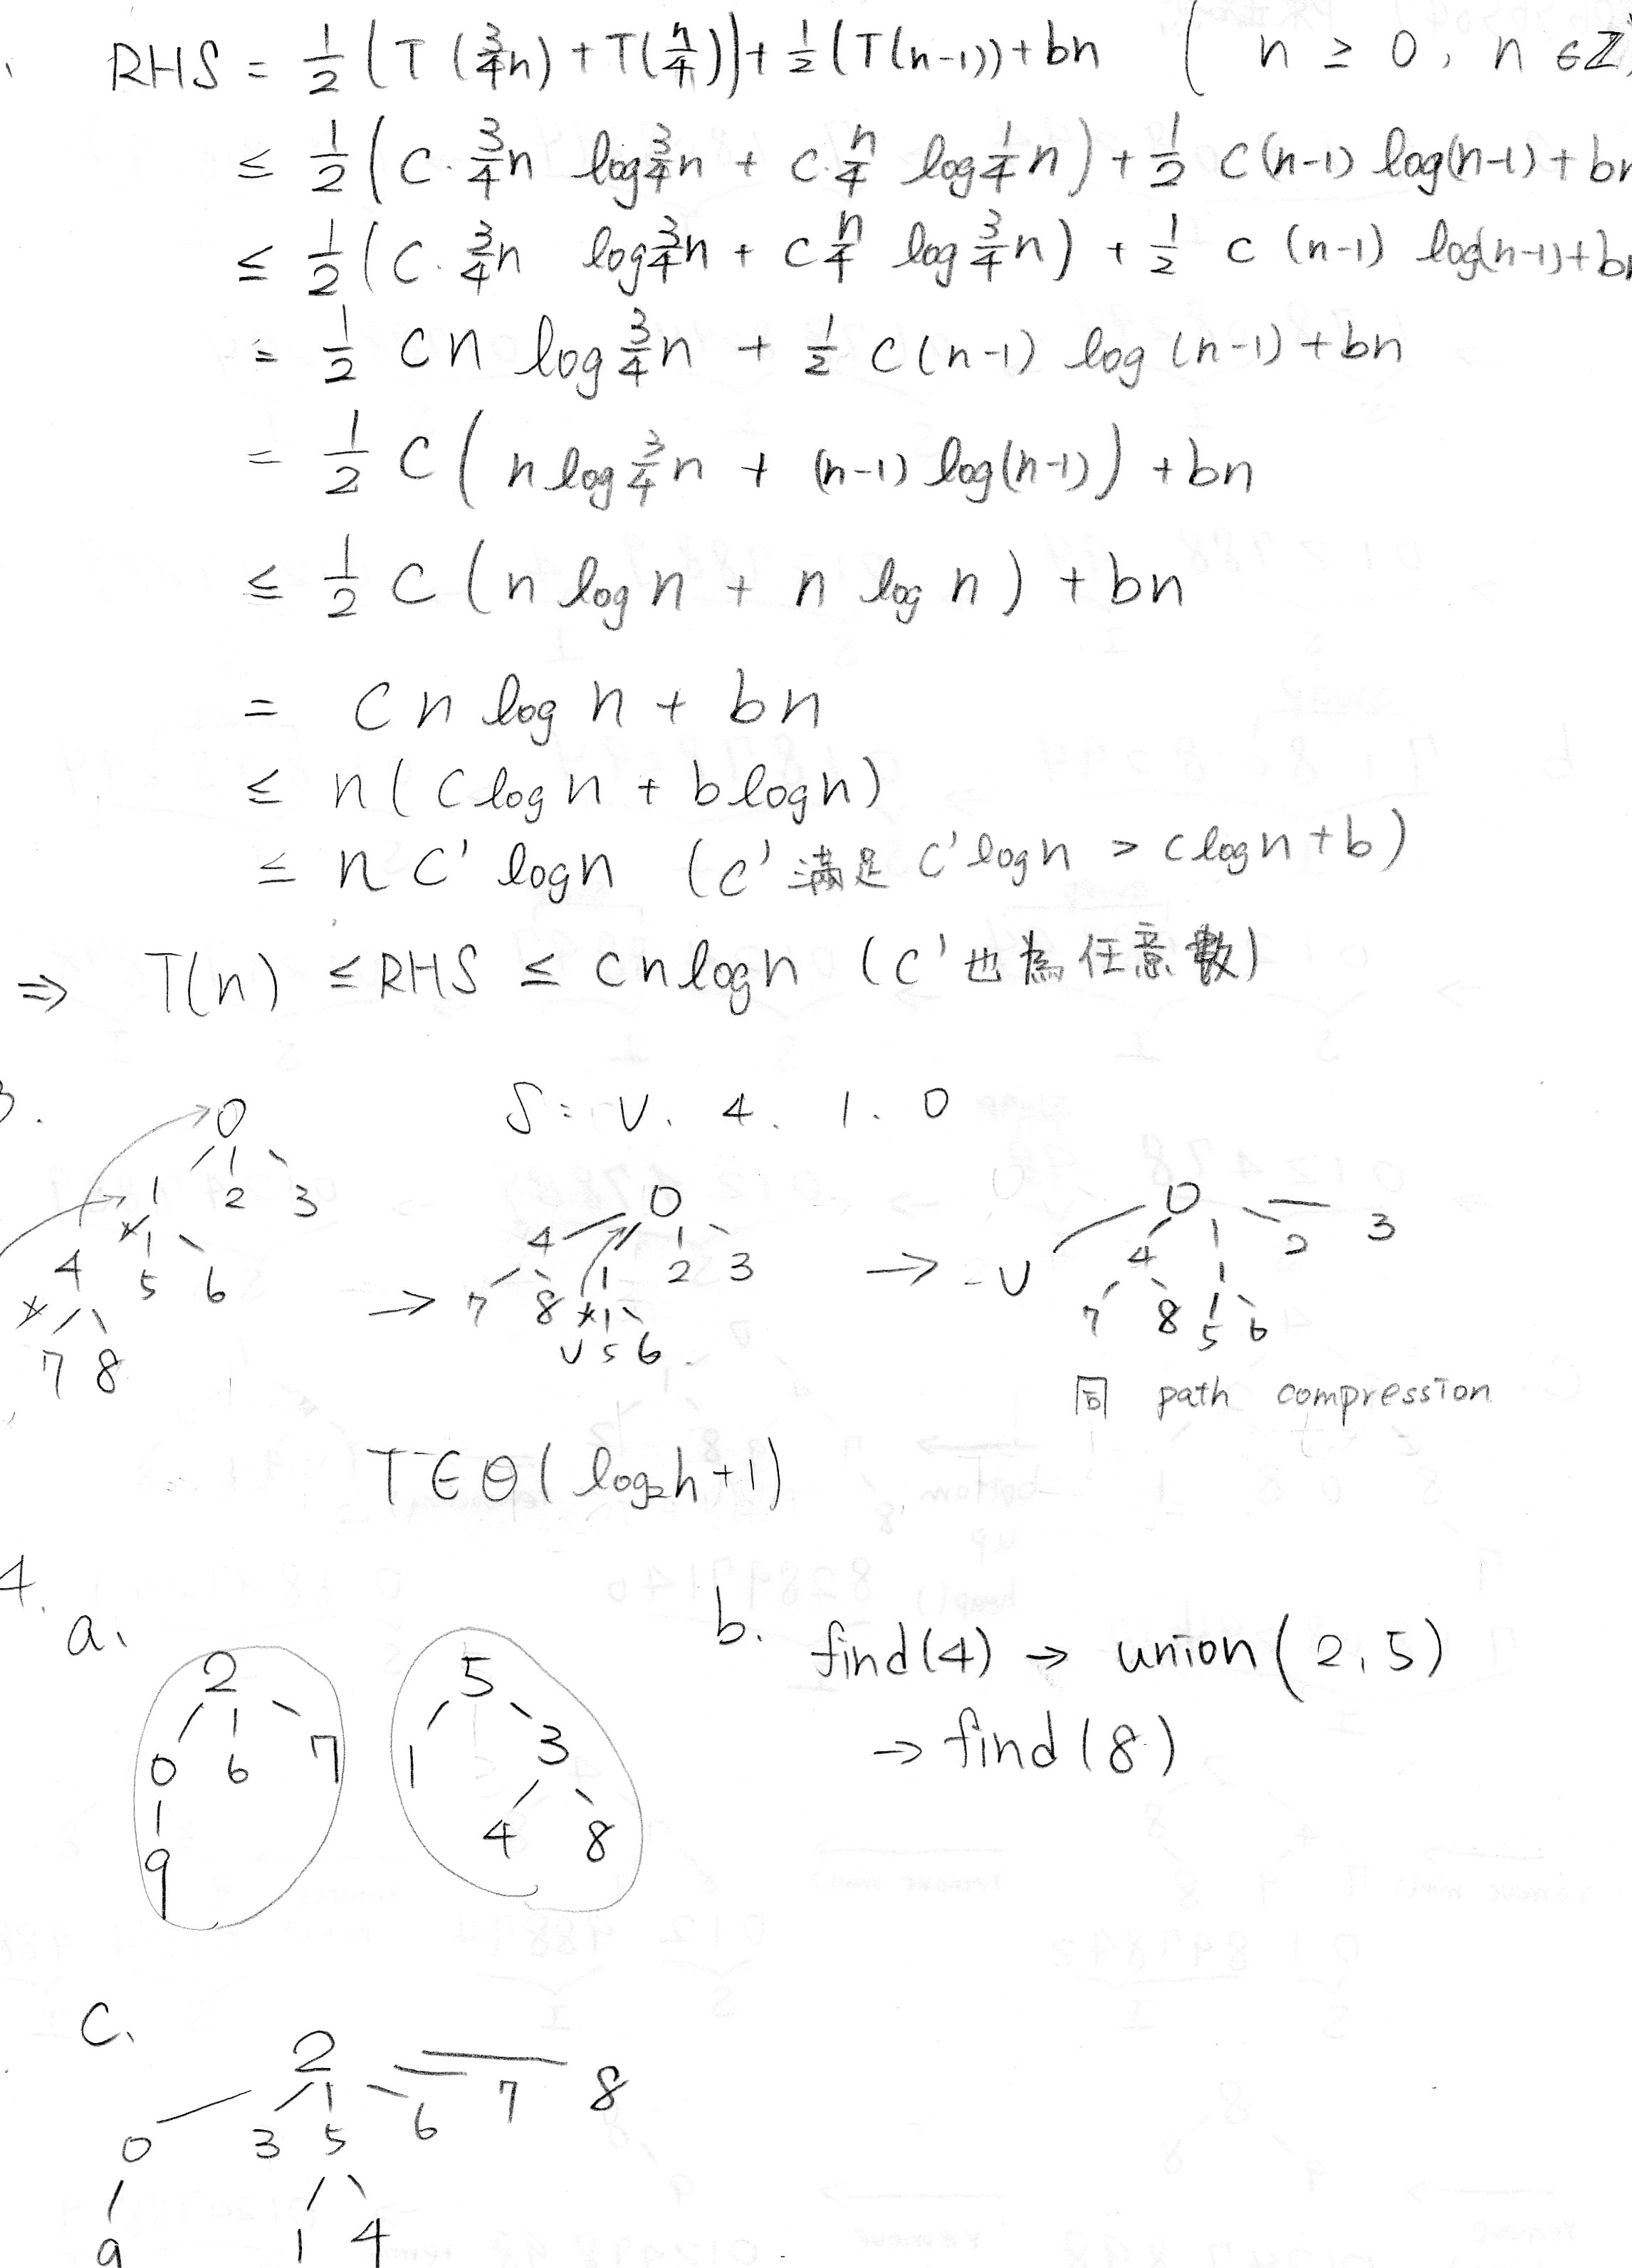 RHS = 1/2 (T(3/4 n) + T(n/4)) + 1/2 (T(n-1)) + bn ( n ≥ 0, n ∈ Z
≤ 1/2 (C · 3/4 n log 3/4 n + C · n/4 log 1/4 n) + 1/2 C(n-1) log(n-1) + bn
≤ 1/2 (C · 3/4 n log 3/4 n + C n/4 log 3/4 n) + 1/2 C (n-1) log(n-1) + bn
= 1/2 Cn log 3/4 n + 1/2 C(n-1) log (n-1) + bn
= 1/2 C (n log 3/4 n + (n-1) log(n-1)) + bn
≤ 1/2 C (n log n + n log n) + bn
= Cn log n + bn
≤ n(C log n + b log n)
≤ n C' log n (C' 滿足 C' log n > C log n + b)
⇒ T(n) ≤ RHS ≤ Cn log n (C' 也為任意數)
3. S = V. 4. 1. 0
0
1 2 3
4 5 6
7 8
→
0
4 1 2 3
7 8 V 5 6
→
0
V 4 1 2 3
7 8 5 6
同 path compression
T ∈ Θ( log₂h + 1)
4.
a.
2
0 6 7
9
5
1 3
4 8
b. find(4) → union(2, 5)
→ find(8)
c.
2
0 3 5 6 7 8
9 1 4